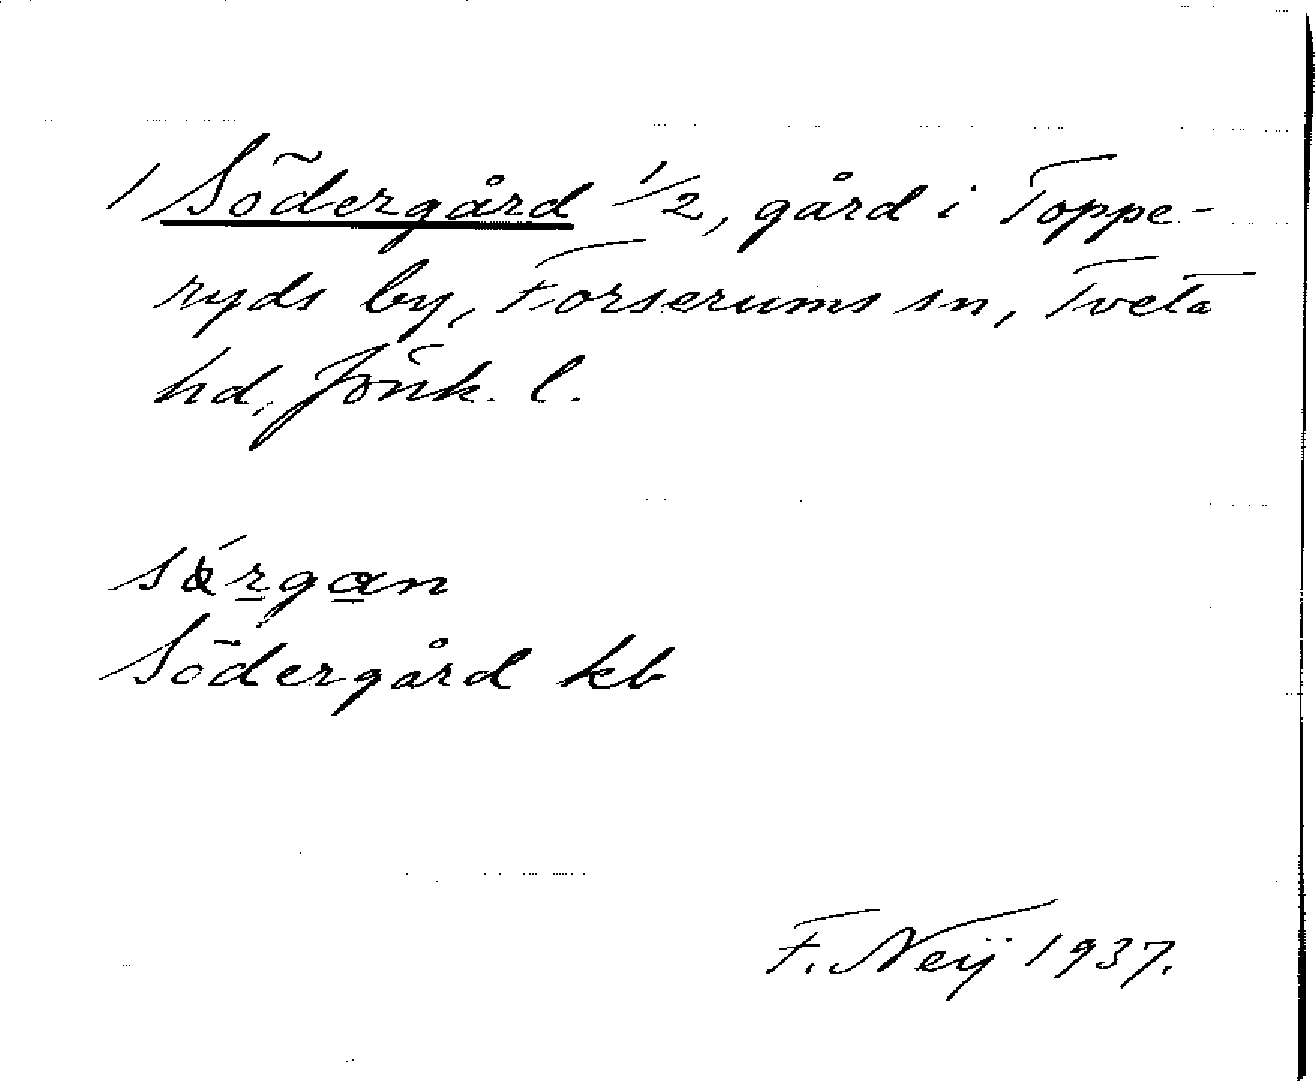 1 Södergård 1/2, gård i Toppe-
ryds by, Forserums sn, Tveta
hd, Jönk. l.
Södergård kb
F. Neij 1937.